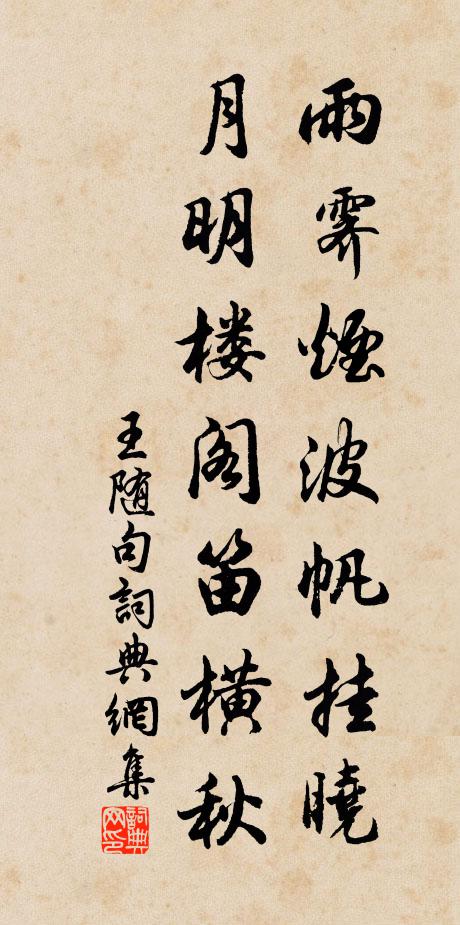 雨霁煙波帆挂曉
月明楼阁笛橫秋
王随句詞典網集
詞典
网印